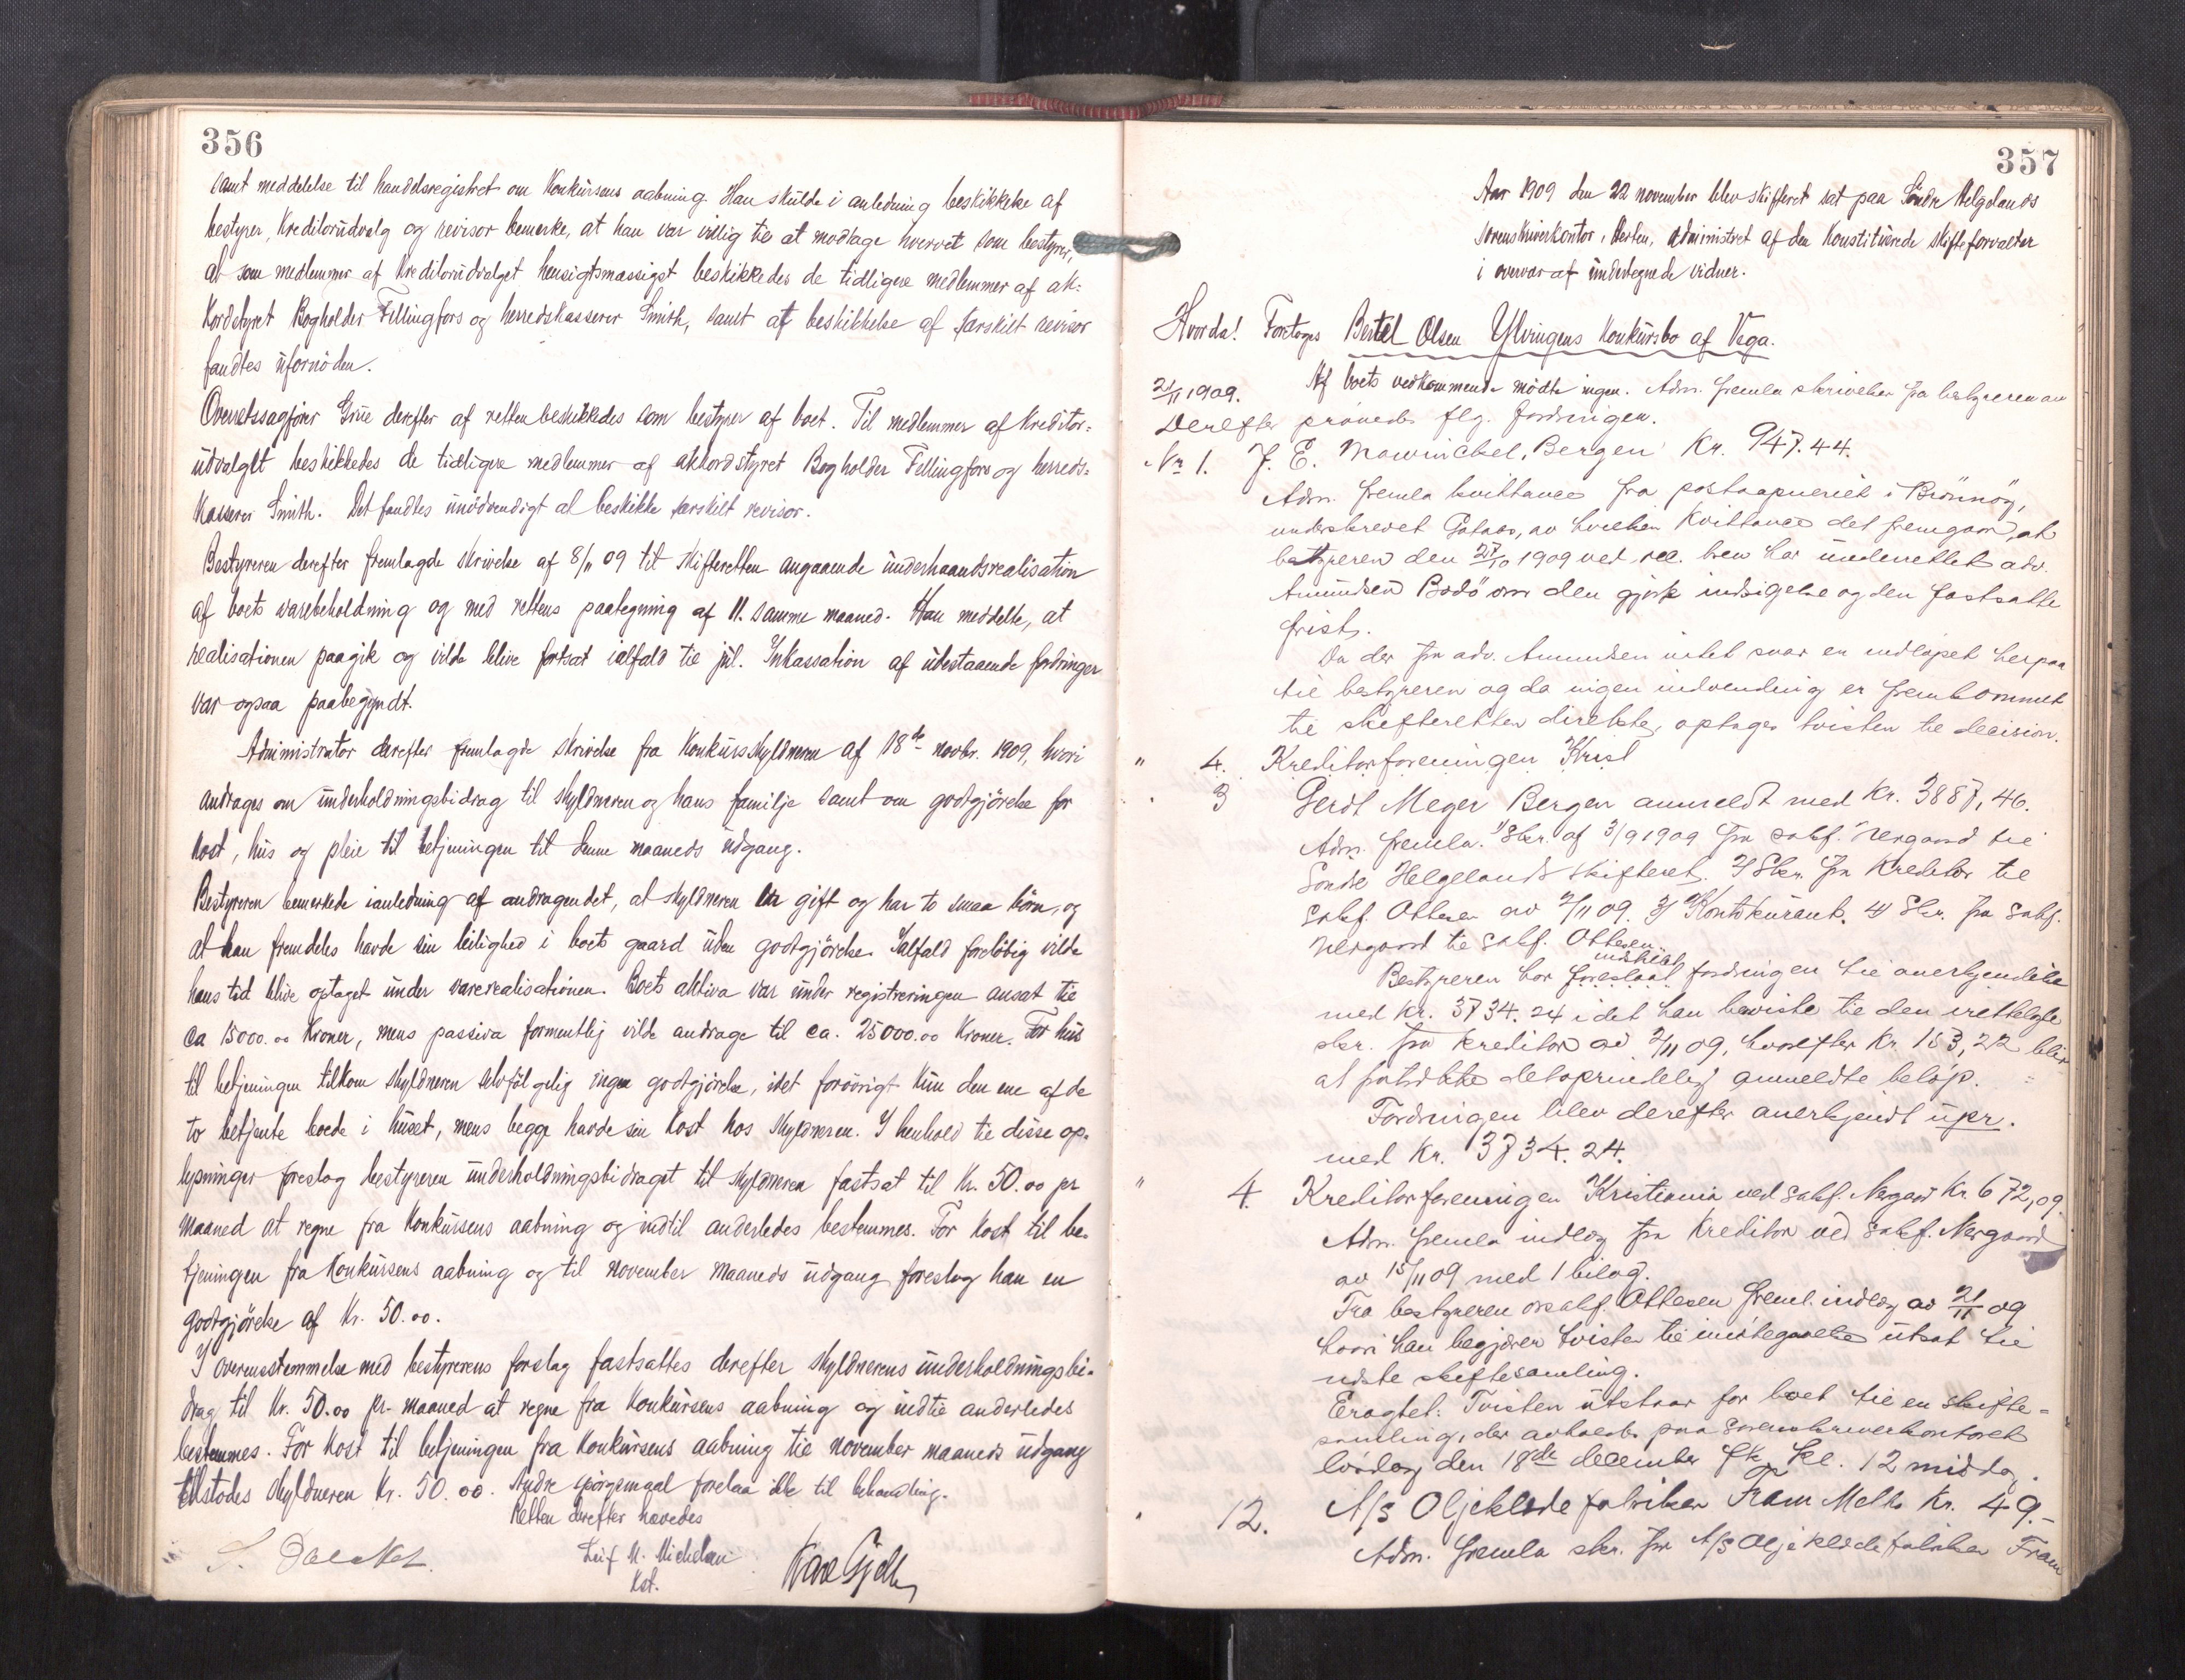 356
samt meddelelse til handelsregistret om Konkursens aabning. Han skulde i anledning beskikkelse af
bestyrer, Kreditorudvalg og revisor bemerke, at han var villig til at modtage hvervet som bestyrer,
at som medlemmer af Kreditorudvalget hensigtsmæssigst beskikkedes de tidligere medlemmer af ak-
kordstyret Bogholder Fellingfors og herredskasserer Smith, samt at beskikkelse af særskilt revisor
fandtes ufornöden.
Overretssagförer Grüe derefter af retten beskikkedes som bestyrer af boet. Til medlemmer af Kreditor-
udvalget beskikkedes de tidligere medlemmer af akkordstyret Bogholder Fellingfors og herreds-
kasserer Smith. Det fandtes unödvendigt at beskikke særskilt revisor.
Bestyreren derefter fremlagde skrivelse af 8/11 09 til skifteretten angaaende underhaandsrealisation
af boets varebeholdning og med rettens paategning af 11. samme maaned. Han meddelte, at
realisationen paagik og vilde blive fortsat ialfald til jul. Inkassation af udestaaende fordringer
var ogsaa paabegyndt.
Administrator derefter fremlagde skrivelse fra Konkursskyldneren af 18de novbr. 1909, hvori
andrages om underholdningsbidrag til skyldneren og hans familje samt om godtgjörelse for
kost, hus og pleie til betjeningen til denne maaneds udgang.
Bestyreren bemerkede i anledning af andragendet, at skyldneren er gift og har to smaa börn, og
at han fremdeles havde sin leilighed i boets gaard uden godtgjörelse. Ialfald forelöbig vilde
hans tid blive optaget under varerealisationen. Boets aktiva var under registreringen ansat til
ca 15000.00 Kroner, mens passiva formentlig vilde andrage til ca. 25000.00 Kroner. For hus
til betjeningen tilkom skyldneren selvfölgelig ingen godtgjörelse, idet forövrigt kun den ene af de
to betjente boede i huset, mens begge havde sin kost hos skyldneren. I henhold til disse op-
lysninger foreslog bestyreren underholdningsbidraget til skyldneren fastsat til Kr. 50.00 pr
maaned at regne fra Konkursens aabning og indtil anderledes bestemmes. For kost til be-
tjeningen fra Konkursens aabning og til november maaneds udgang foreslog han en
godtgjörelse af Kr. 50.00.
I overensstemmelse med bestyrerens forslag fastsattes derefter skyldnerens underholdningsbi-
drag til Kr. 50.00 pr. maaned at regne fra Konkursens aabning og indtil anderledes
bestemmes. For kost til betjeningen fra Konkursens aabning til november maaneds udgang
tilstodes skyldneren Kr. 50.00. Andre spörgsmaal forelaa ikke til behandling.
Retten derefter hævedes
Leif M. Michelsen
Kst.
357
Aar 1909 den 22 november blev skifteret sat paa Söndre Helgelands
sorenskriverkontor, Nesten, administret af den Konstituerede skifteforvalter
i overvær af undertegnede vidner.
Hvorda! Foretoges Bertel Olsen Ylvingens Konkursbo af Vega.
21/11 1909. Af boets vedkommende mödte ingen. Adm. fremla skrivelser fra bestyreren av
Derefter prövedes flg. fordringer.
Nr 1. J. E. Mowinckel, Bergen Kr. 947.44.
Adm. fremla kvittance fra postaapneriet i Brönnöy,
underskrevet Gataas, av hvilken Kvittance det fremgaar, at
bestyreren den 27/10 1909 ved rec. brev har underrettet adv.
Amundsen Bodö om den gjorte indsigelse og den fastsatte
frist.
Da der fra adv. Amundsen intet svar er indlöpet herpaa
til bestyreren og da ingen indvending er fremkommet
til skifteretten direkte, optages tvisten til decision.
" 4. Kreditorforeningen Krist
" 3 Gerdt Meyer Bergen anmeldt med Kr. 3887,46.
Adm. fremla. 1/ Skr. af 3/9 1909 fra sakf. Nergaard til
Söndre Helgelands skifteret. 2/ Skr. fra Kreditor til
sakf. Ottesen av 2/11 09. 3/ Kontokurant. 4/ Skr. fra sakf.
Nergaard til sakf. Ottesen.
indstillet
Bestyreren har foreslaat fordringen til anerkjendelse
med Kr. 3734.24 idet han henviste til den irettelagte
skr. fra kreditor av 2/11 09, hvorefter Kr. 153,22 blir
at fratrække det oprindelig anmeldte belöp.
Fordringen blev derefter anerkjendt upr.
med Kr. 3734.24.
" 4. Kreditorforeningen Kristiania ved sakf. Nergaard Kr 672,09.
Adm. fremla indlæg fra Kreditor ved sakf. Nergaard
av 15/11 09 med 1 bilag.
Fra bestyreren orsakf. Ottesen freml. indlæg av 21/11 09
hvori han begjærer tvisten til imötegaaelse utsat til
næste skiftesamling.
Eragtet: Tvisten utstaar for boet til en skifte-
samling, der avholdes paa sorenskriverkontoret
lördag den 18de december fk. kl. 12 middag.
" 12. A/S Oljeklædefabriken Fram Melbo Kr. 49.-
Adm. fremla skr. fra A/S Oljeklædefabriken Fram